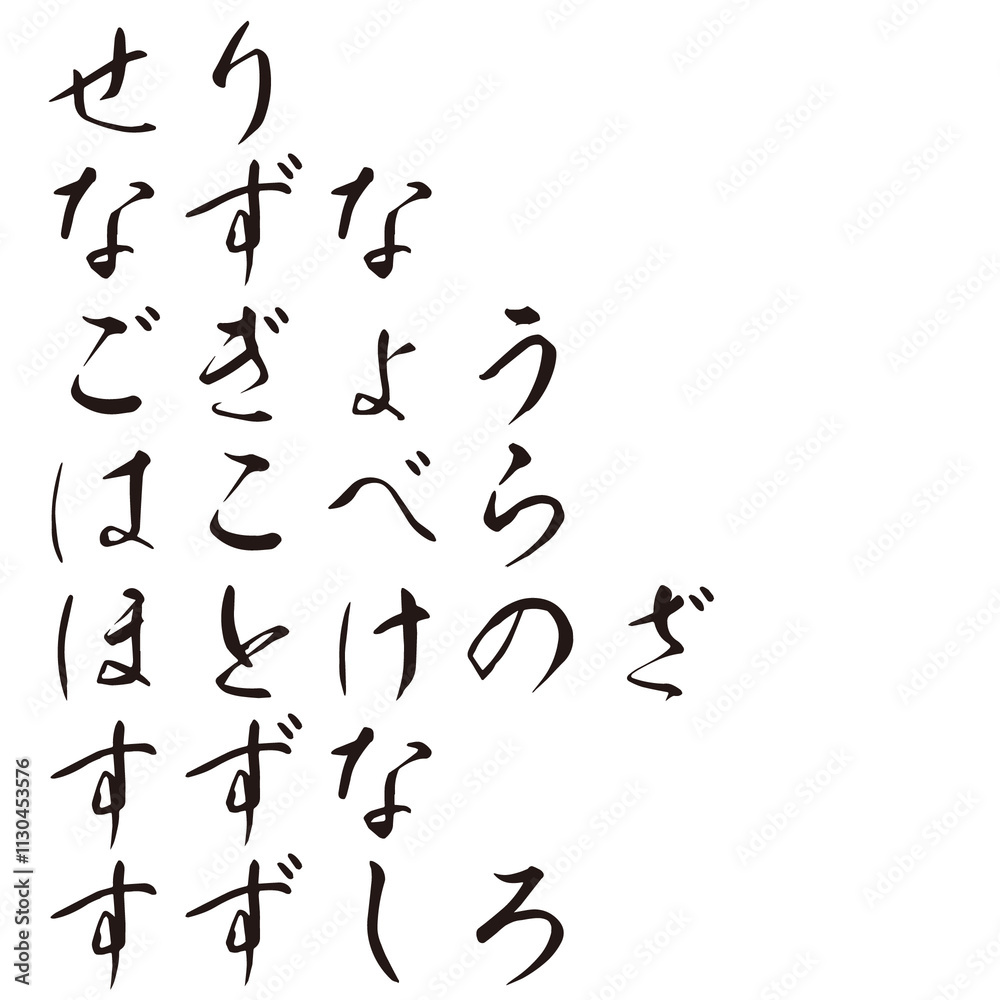 せり
なずな
ごぎょう
はこべら
ほとけのざ
すずな
すずしろ
Adobe Stock | #1130453576